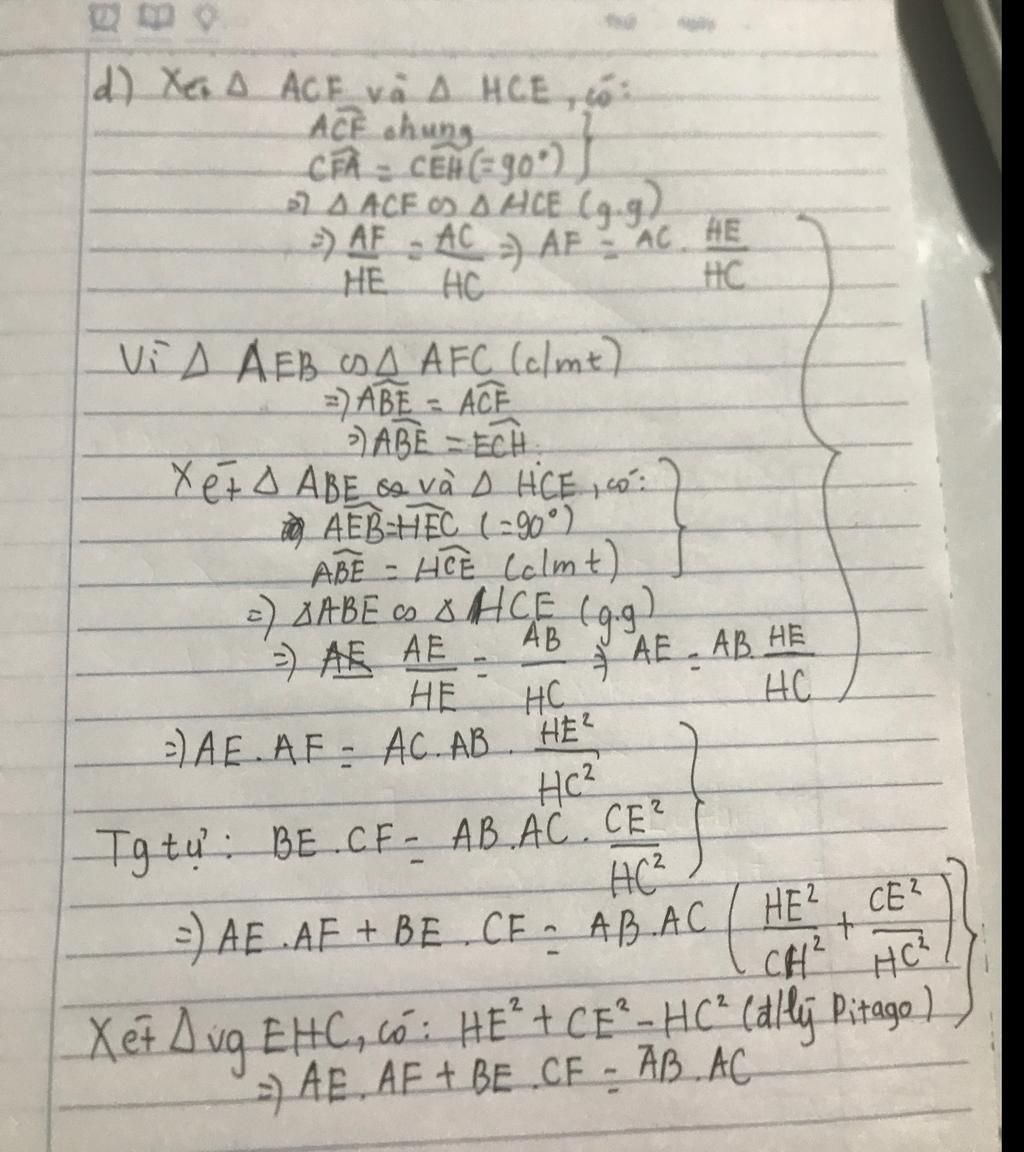 d) Xét Δ ACF và Δ HCE, có:
ACF chung
CFA = CEH (=90°)
=) Δ ACF ∽ Δ HCE (g.g)
=) AF/HE = AC/HC =) AF = AC. HE/HC
Vì Δ AEB ∽ Δ AFC (c/mt)
=) ABE = ACF
=) ABE = ECH.
Xét Δ ABE và Δ HCE, có:
AEB = HEC (=90°)
ABE = HCE (c/mt)
=) ΔABE ∽ Δ HCE (g.g)
=) AE/HE = AB/HC =) AE = AB. HE/HC
=) AE. AF = AC. AB. HE²/HC²
Tg tự: BE. CF = AB. AC. CE²/HC²
=) AE. AF + BE. CF = AB. AC (HE²/CH² + CE²/HC²)
Xét Δ vg EHC, có: HE² + CE² = HC² (đ/lý Pitago)
=) AE. AF + BE. CF = AB. AC